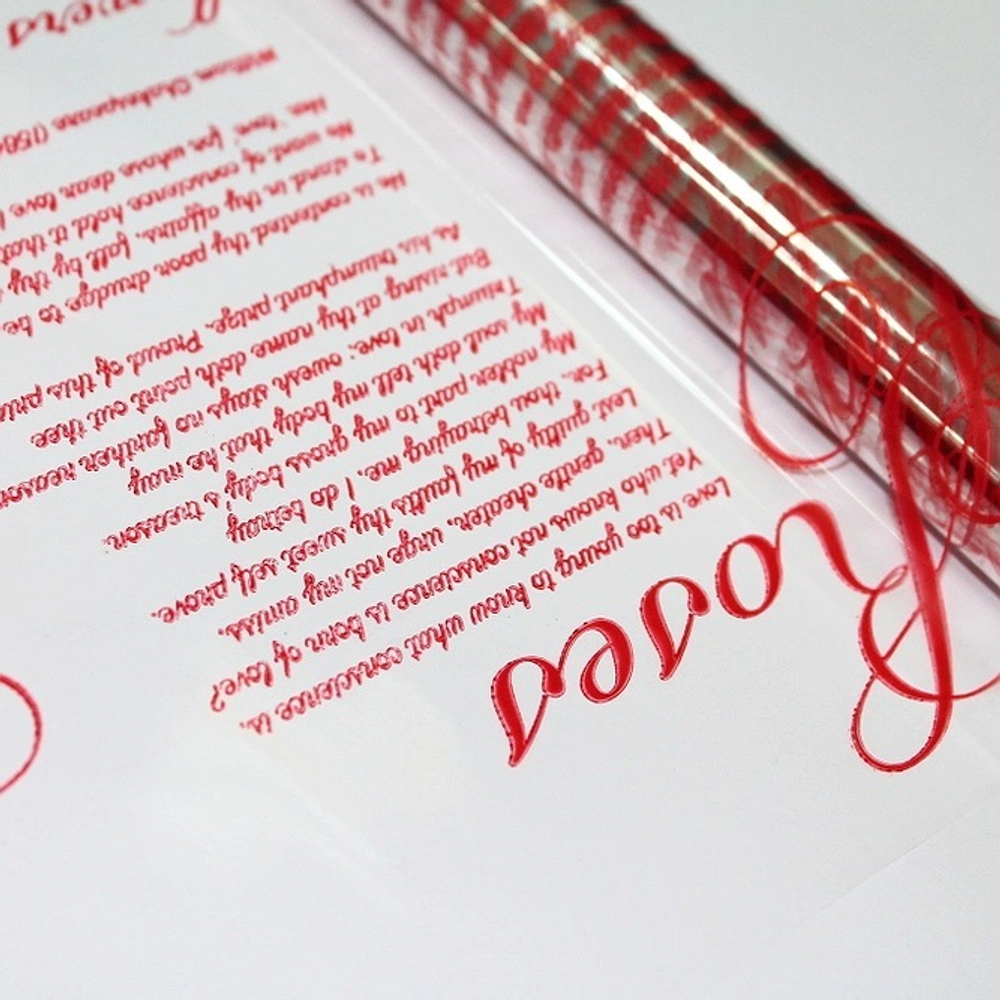 Roses
Love is too young to know what conscience is,
Yet who knows not conscience is born of love?
Then, gentle cheater, urge not my amiss,
Lest guilty of my faults thy sweet self prove.
For, thou betraying me, I do betray
My nobler part to my gross body's treason.
My soul doth tell my body that he may
Triumph in love; owesh stays no farther reason
But rising at thy name doth point out thee
As his triumphant prize. Proud of this
He is contented thy poor drudge to be,
To stand in thy affairs, fall by thy
No want of conscience hold it that
Her 'love' for whose dear love
William Shakespeare (1564